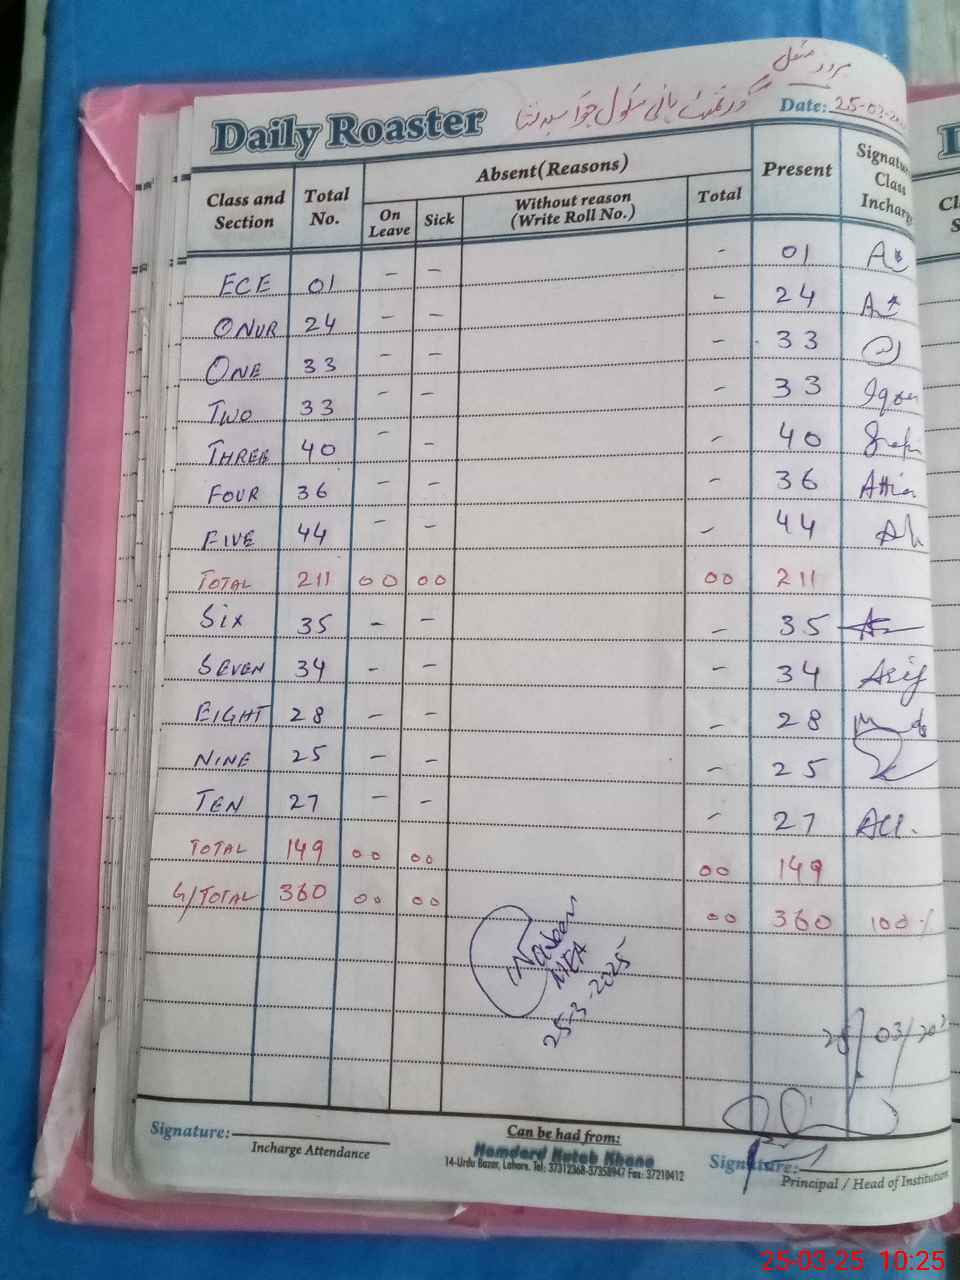 Daily Roaster
Date: 25-03-20
Class and Section Total No. Absent(Reasons) Present Signature Class Incharge
On Leave Sick Without reason (Write Roll No.) Total
ECE 01 - - - 01
ONUR 24 - - - 24
ONE 33 - - - 33
TWO 33 - - - 33
THREE 40 - - - 40
FOUR 36 - - - 36
FIVE 44 - - - 44
TOTAL 211 00 00 00 211
SIX 35 - - - 35
SEVEN 34 - - - 34 Arif
EIGHT 28 - - - 28
NINE 25 - - - 25
TEN 27 - - - 27
TOTAL 149 00 00 00 149
G/TOTAL 360 00 00 00 360 100%
MEA
25-3-2025
25/03/202
Signature:
Incharge Attendance
Can be had from:
Hamdard Kutab Khana
14-Urdu Bazar, Lahore. Tel: 37312368-37358947 Fax: 37210412
Signature:
Principal / Head of Institution
25-03-25 10:25